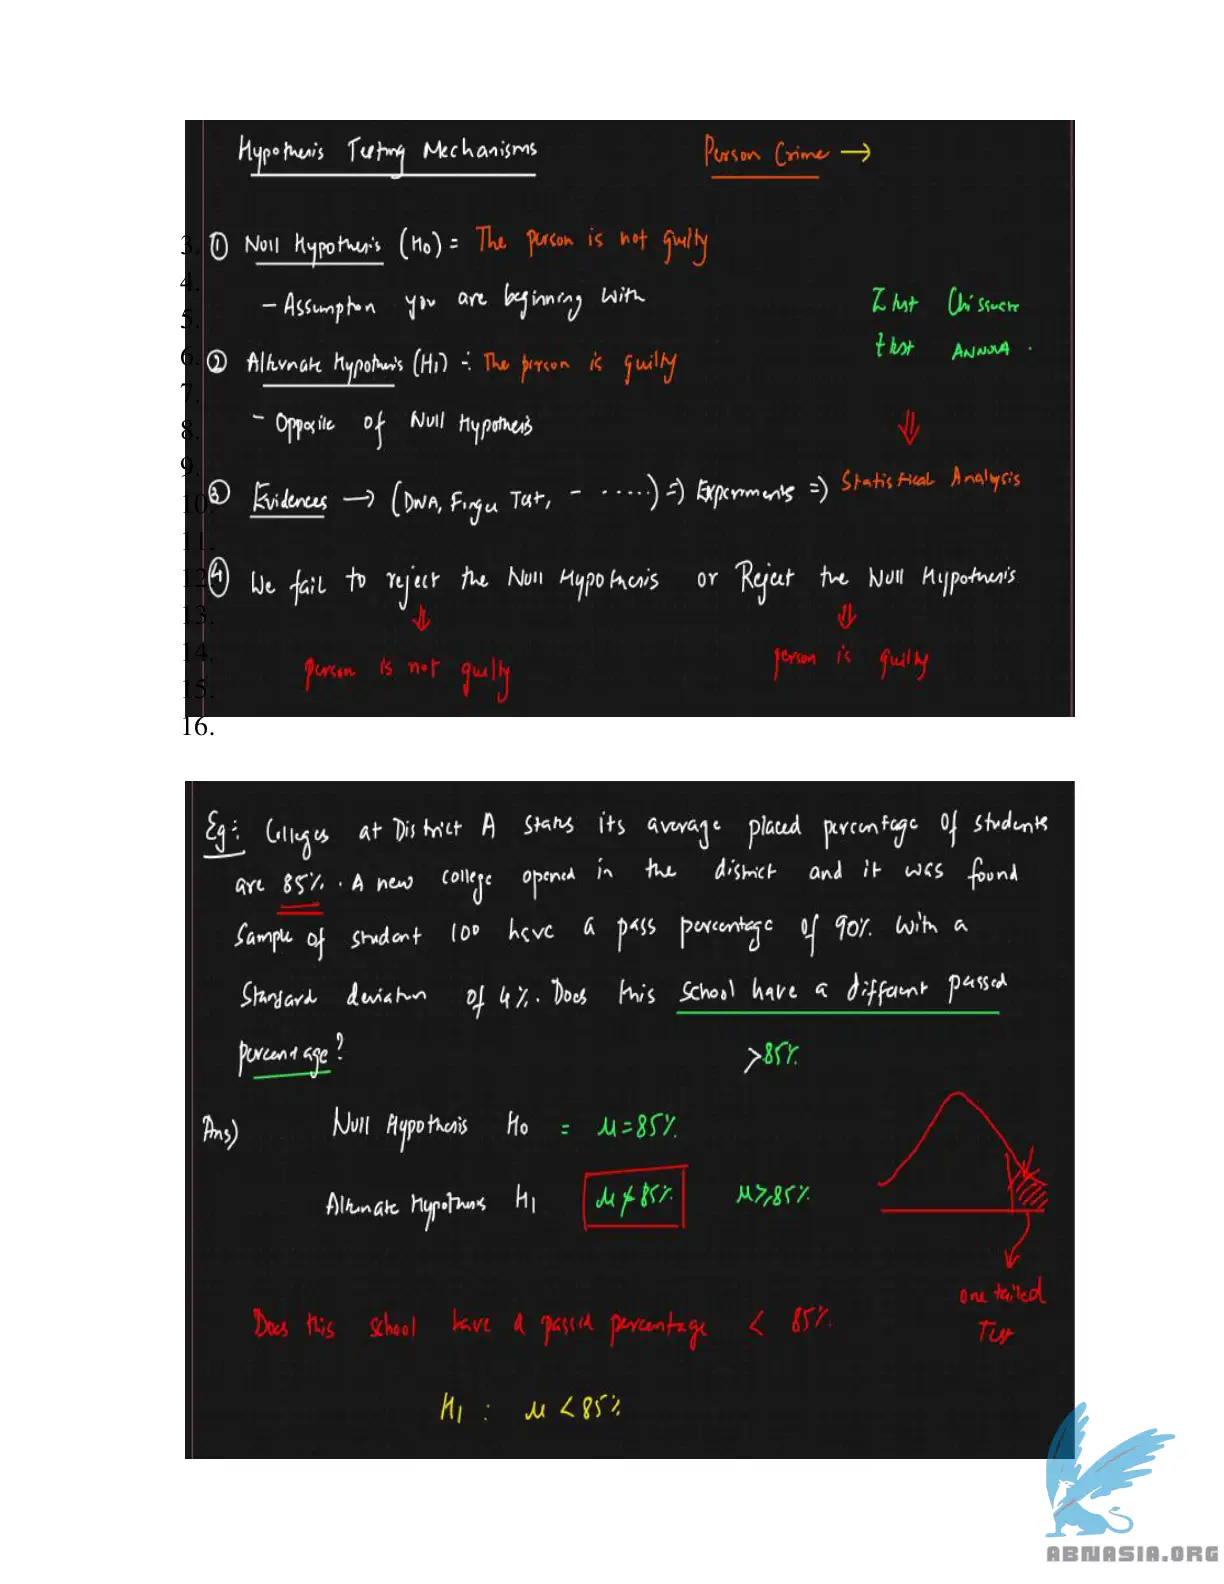 Hypothesis Testing Mechanisms
Person Crime →
3. ① Null Hypothesis (H0) = The person is not guilty
4.
- Assumption you are beginning with
Z test Chi square
5.
t test ANNOVA.
6. ② Alternate Hypothesis (H1) ÷ The person is guilty
7.
8. - Opposite of Null Hypothesis
9.
Statistical Analysis
10. ③ Evidences → (DNA, Finger Test, - .....) ⇒ Experiments ⇒)
11.
12. ④ We fail to reject the Null Hypothesis or Reject the Null Hypothesis
13.
14. person is not guilty person is guilty
15.
16.
Eg÷ Colleges at District A states its average placed percentage of students
are 85%. A new college opened in the district and it was found
Sample of student 100 have a pass percentage of 90% with a
Standard deviation of 4%. Does this school have a different passed
percentage?
>85%
Ans) Null Hypothesis H0 = μ=85%
Alternate Hypothesis H1 μ≠85% μ≥85%
one tailed
Test
Does this school have a passed percentage < 85%
H1 : μ <85%
ABNASIA.ORG